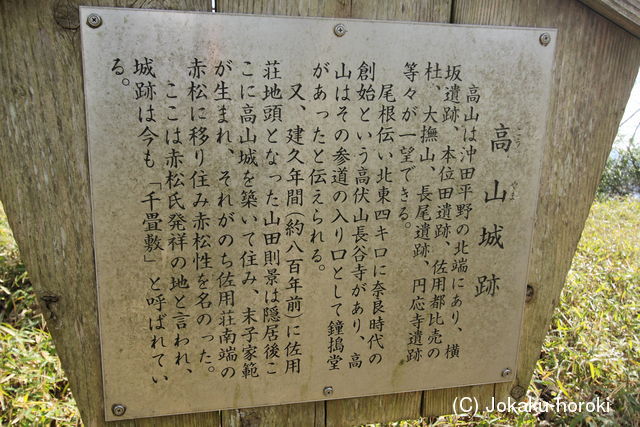 高山城跡
こう やま
高山は沖田平野の北端にあり、横
坂遺跡、本位田遺跡、佐用都比売の
杜、大撫山、長尾遺跡、円応寺遺跡
等々が一望できる。
尾根伝い北東四キロに奈良時代の
創始という高伏山長谷寺があり、高
山はその参道の入り口として鐘搗堂
があったと伝えられる。
又、建久年間(約八百年前)に佐用
荘地頭となった山田則景は隠居後こ
こに高山城を築いて住み、末子家範
が生まれ、それがのち佐用荘南端の
赤松に移り住み赤松性を名のった。
ここは赤松氏発祥の地と言われ、
城跡は今も「千畳敷」と呼ばれてい
る。
(C) Jokaku-horoki